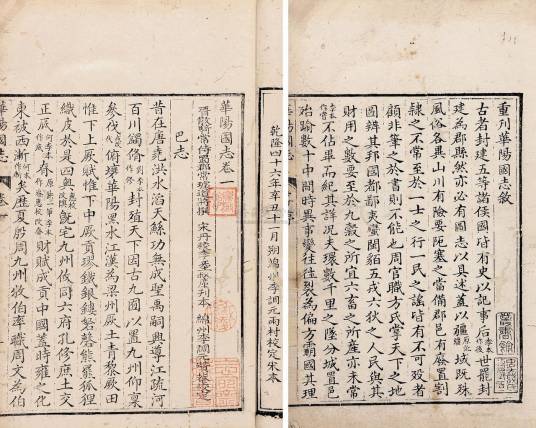 重刋華陽國志敘
古者封建五等諸侯國皆有史以記事後李本作后世罷封
建為郡縣然亦必有圖志以具述蓋以疆域既殊
風俗各異山川有險要阨塞之當備郡邑有廢置割
隸之不常至於一士之行一民之謡皆有不可没者
顧非筆之於書則不能也周官職方氏掌天下之地
圖辨其邦國都鄙夷蠻閩貉五戎六狄之人民與其
財用之數要至於九穀之所宜六畜之所產亦未嘗
不佔畢而紀其詳况夫環數千里之墬分城置邑
殆踰數十中間時異事變往往裂為偏方霸國其理
乾隆四十六年辛丑十一月朔綿州李調元雨村校定宋本
華陽國志卷
晉散騎常侍蜀郡常璩道將撰 宋丹稜李 刋本 綿州李調元
巴志
昔在唐堯洪水滔天鯀功無成聖禹嗣興導江疏河
百川蠲脩封殖天下因古九囿以置九州仰稟
參伐俯壤華陽黑水江漢為梁州厥土青黎厥田
惟下上厥賦惟下中厥貢璆鐵銀鏤砮磬熊羆狐狸
織皮於是四奧既宅九州攸同六府孔修庶土交
正厎春財賦成貢中國蓋時雍之化
東被西漸矣歷夏殷周九州牧伯率職周文為伯
華陽國志